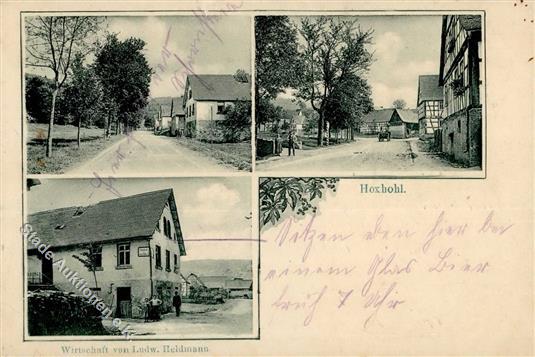 Hoxhohl.
Sitzen eben hier bei
einem Glas Bier
früh 7 Uhr
Stade Auktionen
Wirtschaft von Ludw. Heldmann